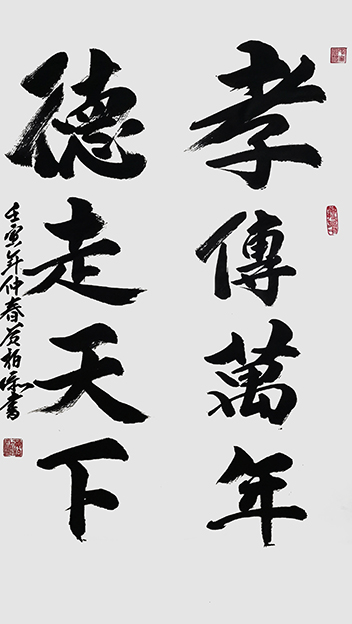 孝傳萬年
德走天下
壬寅年仲春谷柏瑞書